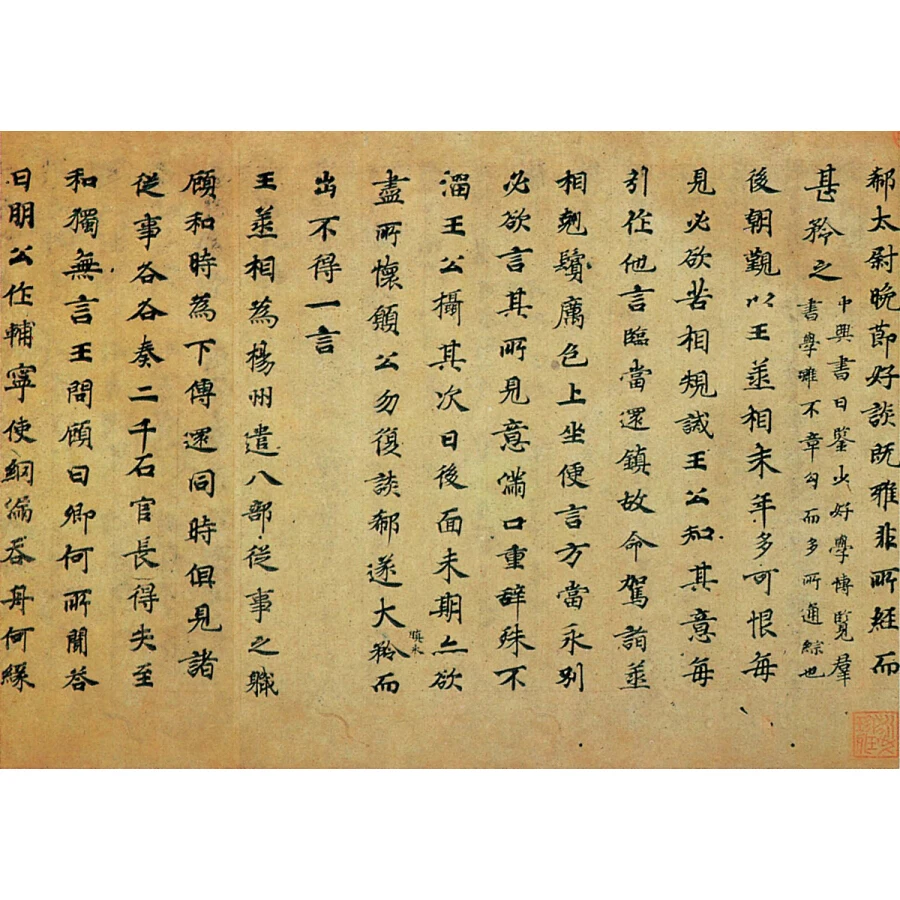 郗太尉晚節好談既雅非所經而
甚矜之
中興書曰鑒少好學博覽羣
書學雖不章勾而多所通綜也
後朝覲以王丞相末年多可恨每
見必欲苦相規誡王公知其意每
引作他言臨當還鎮故命駕詣丞
相翹鬚厲色上坐便言方當永別
必欲言其所見意滿口重辭殊不
溜王公攝其次曰後面未期亦欲
盡所懷願公勿復談郗遂大矜而
出不得一言
王丞相為楊州遣八部從事之職
顧和時為下傳還同時俱見諸
從事各各奏二千石官長得失至
和獨無言王問顧曰卿何所聞答
曰明公作輔寧使網漏吞舟何緣